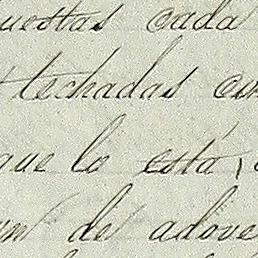 uestas cada
techadas con
que lo está,
de adove